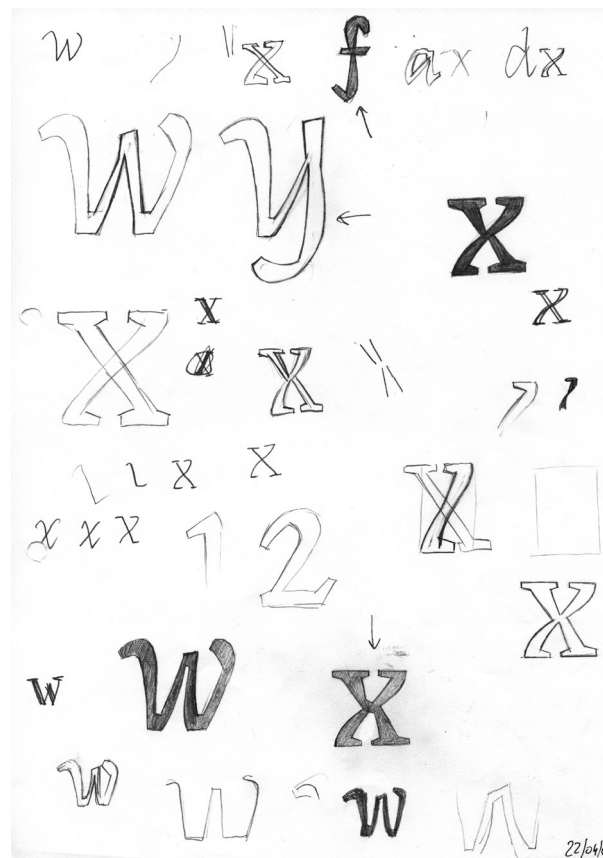 w x f ax dx
w y
x
x x x
x
x x
x x x 1 2 x
x
w w x
w w w w
22/04/